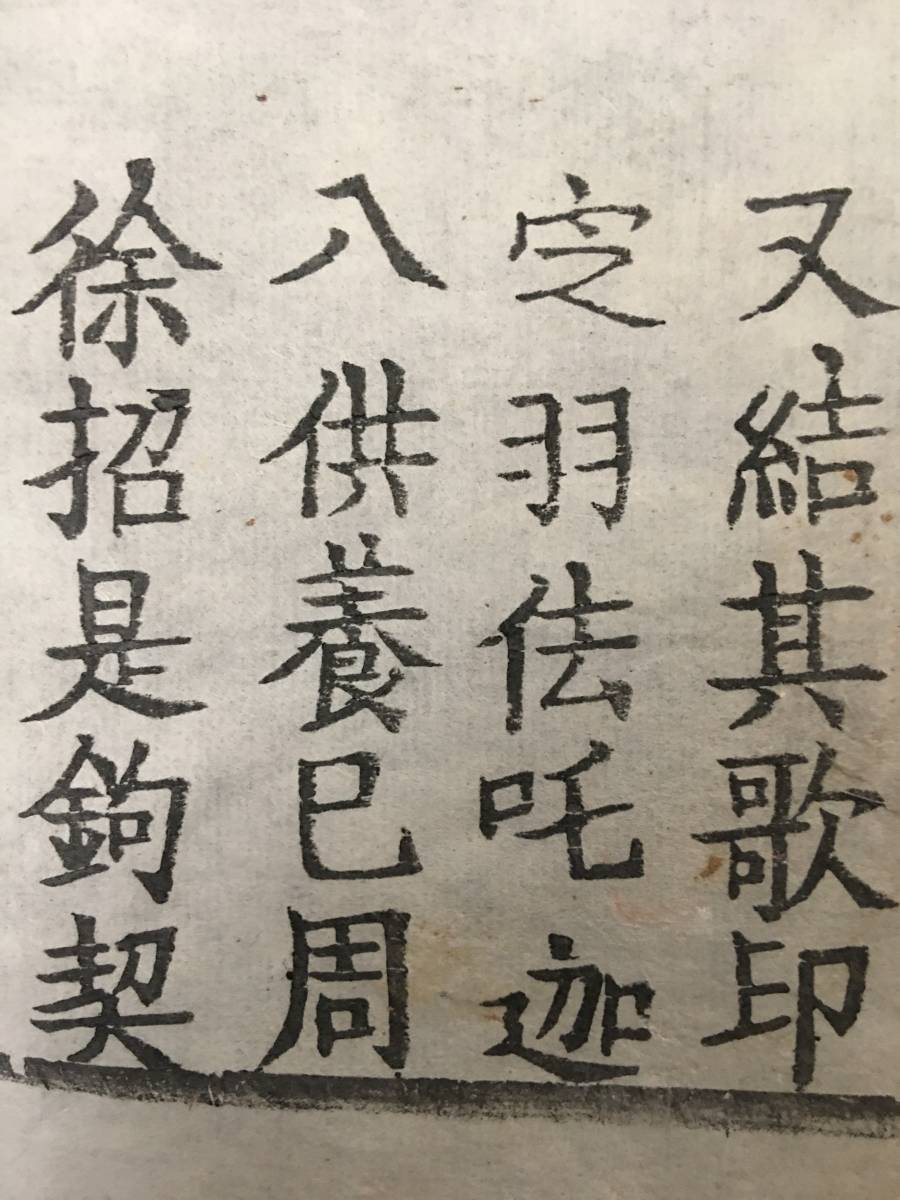 又結其歌印
定羽佉吒迦
八供養巳周
徐招是鉤契